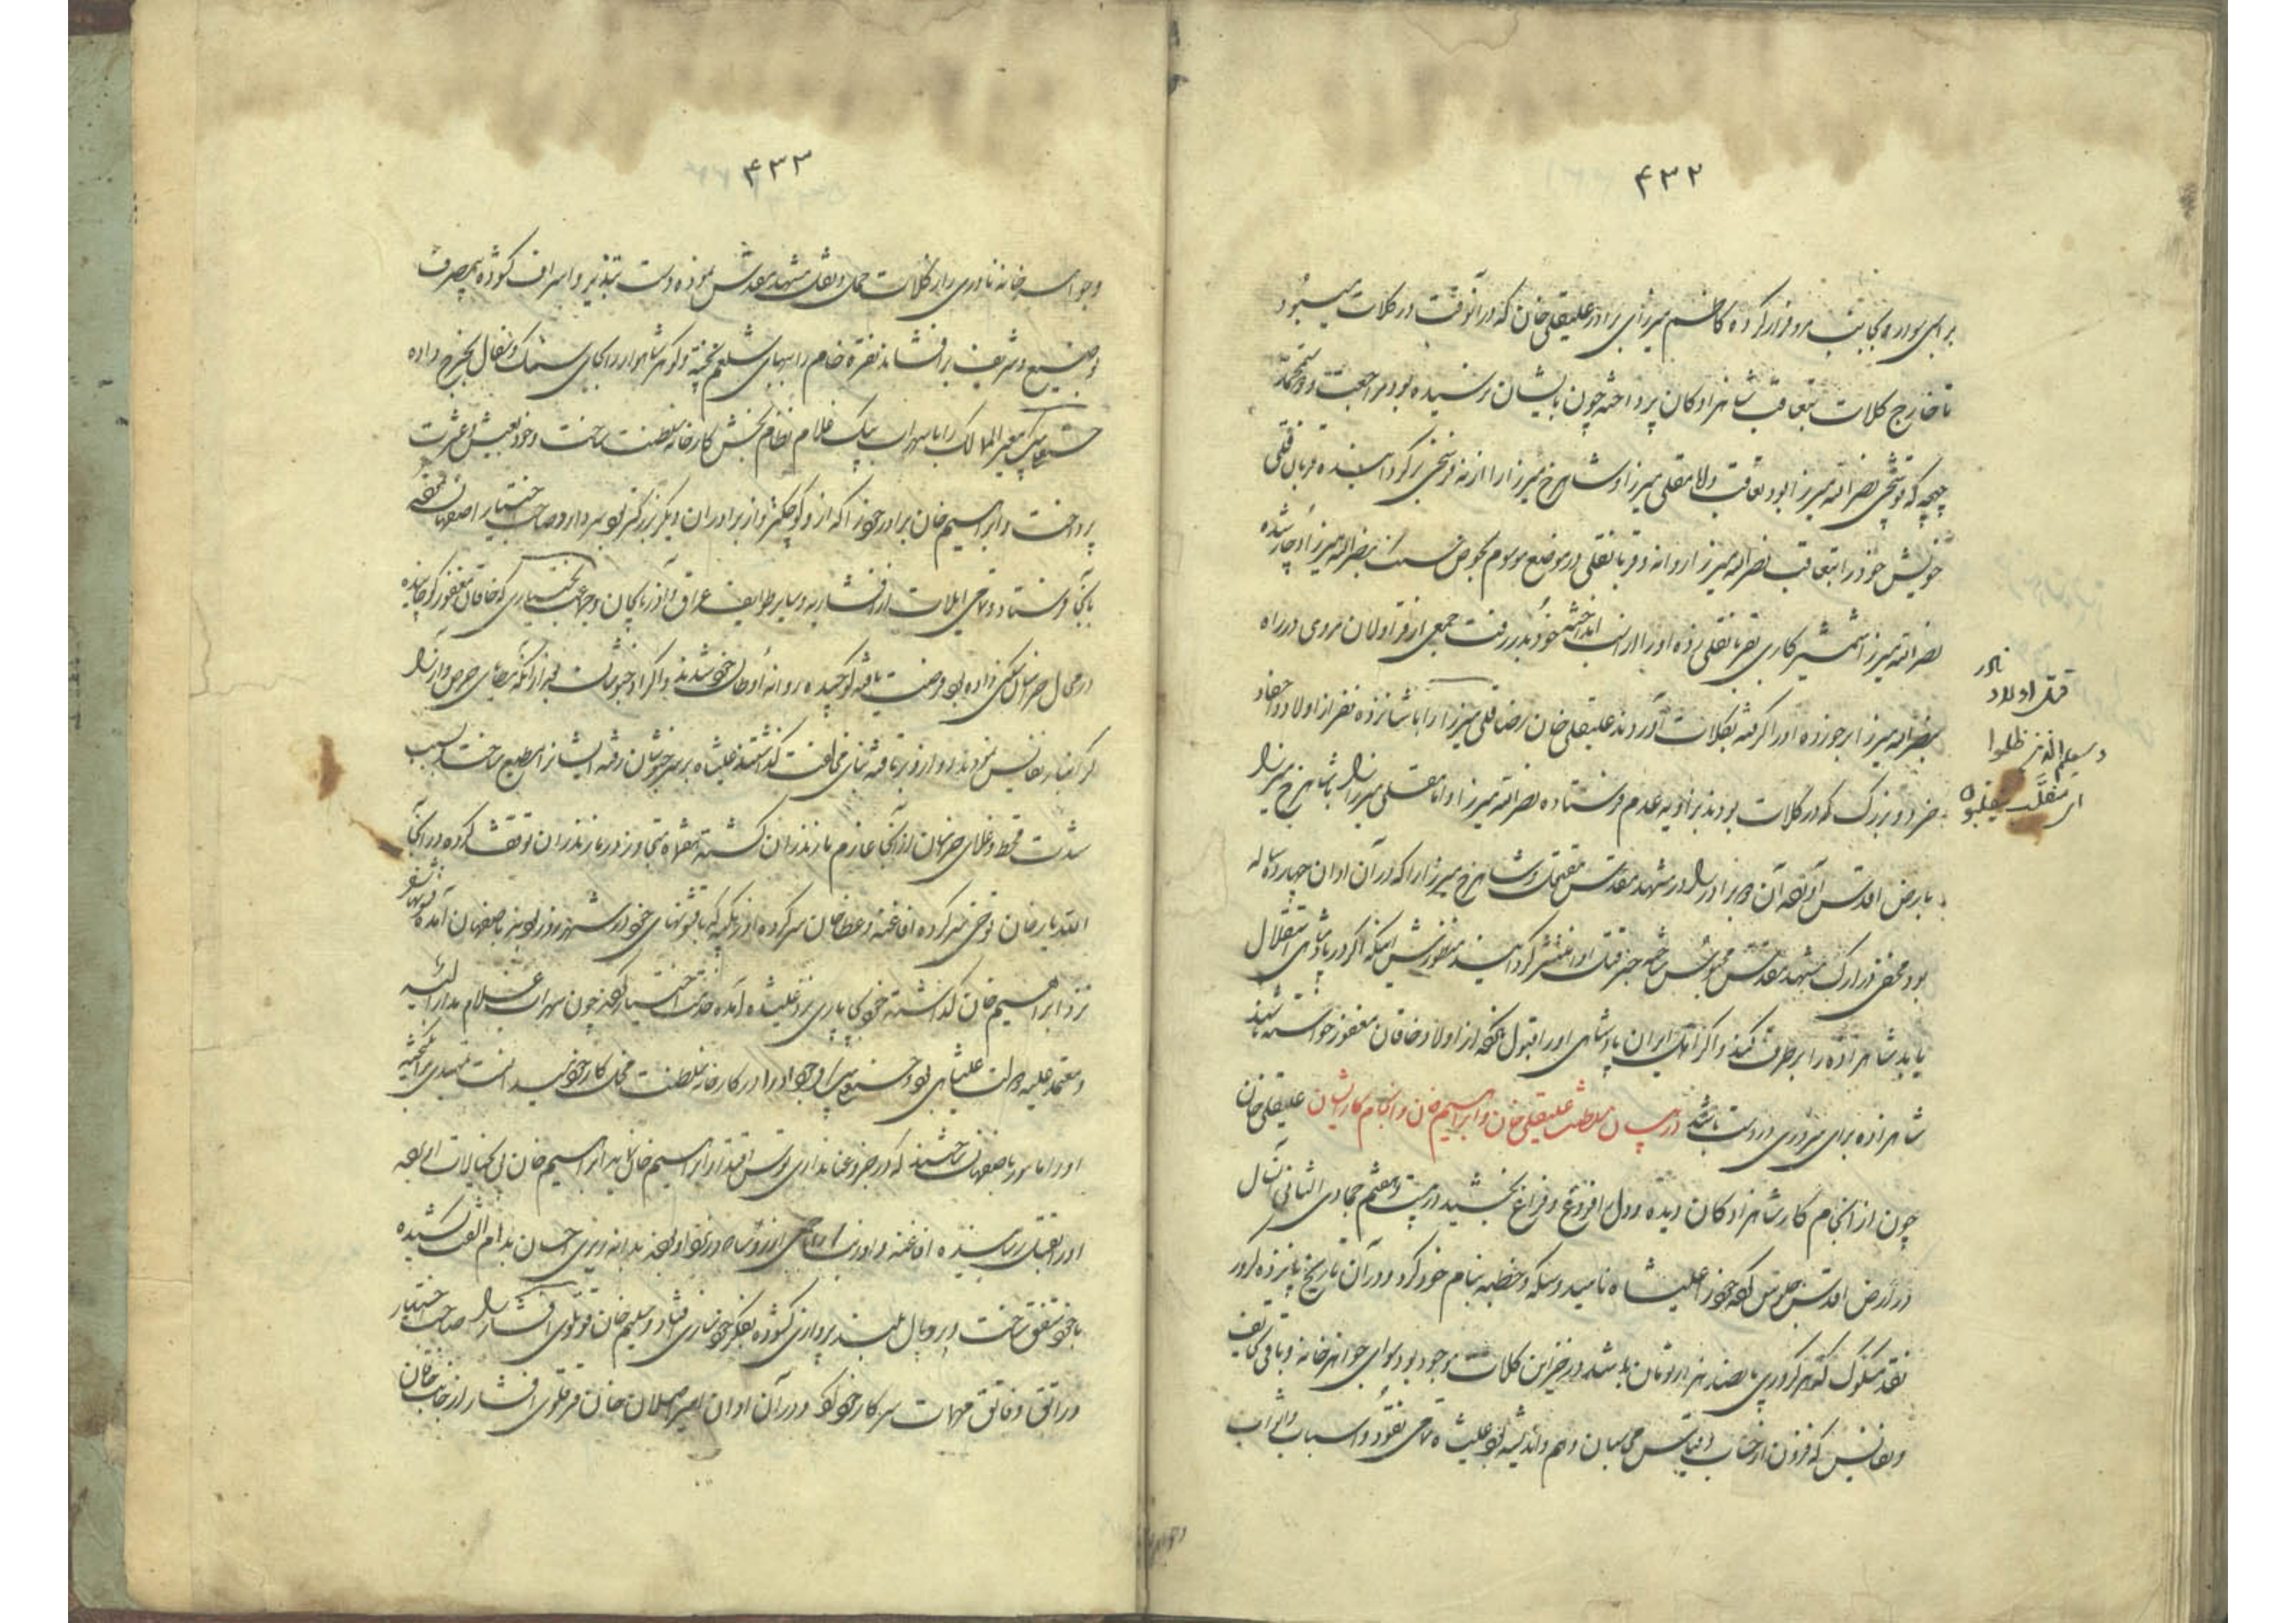 ۴۳۲
برای سواره بجانب مرو فرار کرده کاظم میرزای برادر علیقلی خان که در آنوقت در کلات میبود
تا خارج کلات بتعاقب شاهزادگان پرداخته چون بایشان نرسیده بود مراجعت و دوستمحمد
چهچه که قوشچی نصرالله میرزا بود تعاقب و امامقلی میرزا و شاهرخ میرزا را از نه فرسخی برگردانیده قربانقلی
خویش خود را بتعاقب نصرالله میرزا روانه و قربانقلی در موضع موسوم بحوض سنک بنصرالله میرزا دچار شده
نصرالله میرزا شمشیر کاری بقربانقلی زده او را از اسب انداخته خود بدر رفت جمعی از قراولان مروی در راه
بنصرالله میرزا برخورده او را گرفته بکلات آوردند علیقلی خان رضاقلی میرزا را با شانزده نفر از اولاد و احفاد
خرد و بزرگ که در کلات بودند بزاویه عدم فرستاده نصرالله میرزا و امامقلی میرزا را با شاهرخ میرزا
بارض اقدس آورده آن دو برادر را در مشهد مقدس مقتول و شاهرخ میرزا را که در آن اوان چهارده ساله
بود مخفی در ارک مشهد مقدس محبوس ساخته خبر قتل او را منتشر گردانید منظورش اینکه اگر در پادشاهی استقلال
یابد شاهزاده را برطرف کند و اگر اهل ایران پادشاهی او را قبول نکرده از اولاد خاقان مغفور خواسته باشند
شاهزاده برای سروری در دست باشد در بیان سلطنت علیقلی خان و ابراهیم خان و انجام کار ایشان علیقلی خان
چون از انجام کار شاهزادگان دیده و دل را فروغ و فراغ بخشید در بیست و هفتم جمادی الثانی آنسال
در ارض اقدس جلوس کرده خود را علیشاه نامید و سکه و خطبه بنام خود کرد و در آن تاریخ پانزده کرور
نقد مسکوک که هر کروری پانصد هزار تومان باشد در خزاین کلات موجود بود سوای جواهرخانه و باقی تحایف
و نفایس که فزون از حساب و قیاس محاسبان وهم و اندیشه بود علیشاه تمامی نقود و اسباب و اثواب
نادر
قتل اولاد
و سیعلم الذین ظلموا
ای منقلب ینقلبون
۴۳۳
و جواهرخانه نادری را از کلات حمل و نقل مشهد مقدس نموده دست تبذیر و اسراف گشوده بمصرف
وضیع و شریف برافشاند نقره خام را ببهای شلغم پخته و گوهر شاهوار را بجای سنک و سفال بخرج داده
حسنعلی بیک معیر الممالک را با سهراب بیک غلام نظام بخش کارخانه سلطنت ساخت و خود بعیش و عشرت
پرداخت و ابراهیم خان برادر خود را که از او کوچکتر و از برادران دیگر بزرگتر بود سردار و صاحب اختیار اصفهان نموده
بآنجا فرستاد و تمامی ایلات از افشاریه و سایر طوایف عراق و آذربایجان و جماعت بختیاری که خاقان مغفور کوچانیده
در محال خراسان سکنی داده بود رخصت یافته کوچیده روانه اوطان خود شدند و اکراد خبوشان
گرانبار نفایس نموده بود از او رو برتافته بنای مخالفت گذاشتند علیشاه بر سر خبوشان رفته ایشانرا مطیع ساخت بسبب
شدت قحط و غلای خراسان از آنجا عازم مازندران گشته ششماه متجاوز در مازندران توقف کرده در آنجا
اللهیار خان توخی سرکرده افاغنه و عطا خان سرکرده اوزبکیه که با قشونهای خود در شهرزور بود نیز باصفهان آمده قشونها را
نزد ابراهیم خان گذاشته خود بچاپاری نزد علیشاه آمده خدمت اختیار کرده چون سهراب غلام مدار الیه
و معتمد علیه دولت علیشاهی بود و حسنعلی بیک وجود او را در کارخانه سلطنت مخل کار خود میدانست تمهیدی برانگیخته
او را مامور باصفهان ساختند که در جزو عنانداری توسن اقتدار ابراهیم خان نماید ابراهیم خان پی بخیالات او برده
او را بقتل رسانیده افاغنه و اوزبکیه
با خود متفق ساخت و پر و بال بلند پروازی گشوده بفکر خودسازی افتاد و سلیم خان قرقلوی افشار را صاحب اختیار
و راتق و فاتق مهمات سرکار خود کرد و در آن اوان امیر اصلان خان قرقلوی افشار از جانب خاقان